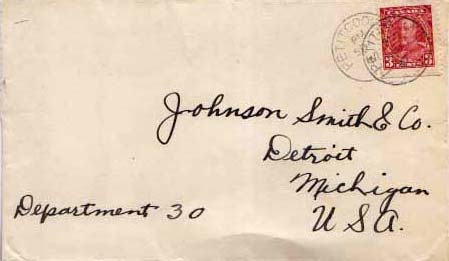 CANADA
3 3
Johnson Smith & Co.
Detroit
Michigan
Department 30
U.S.A.